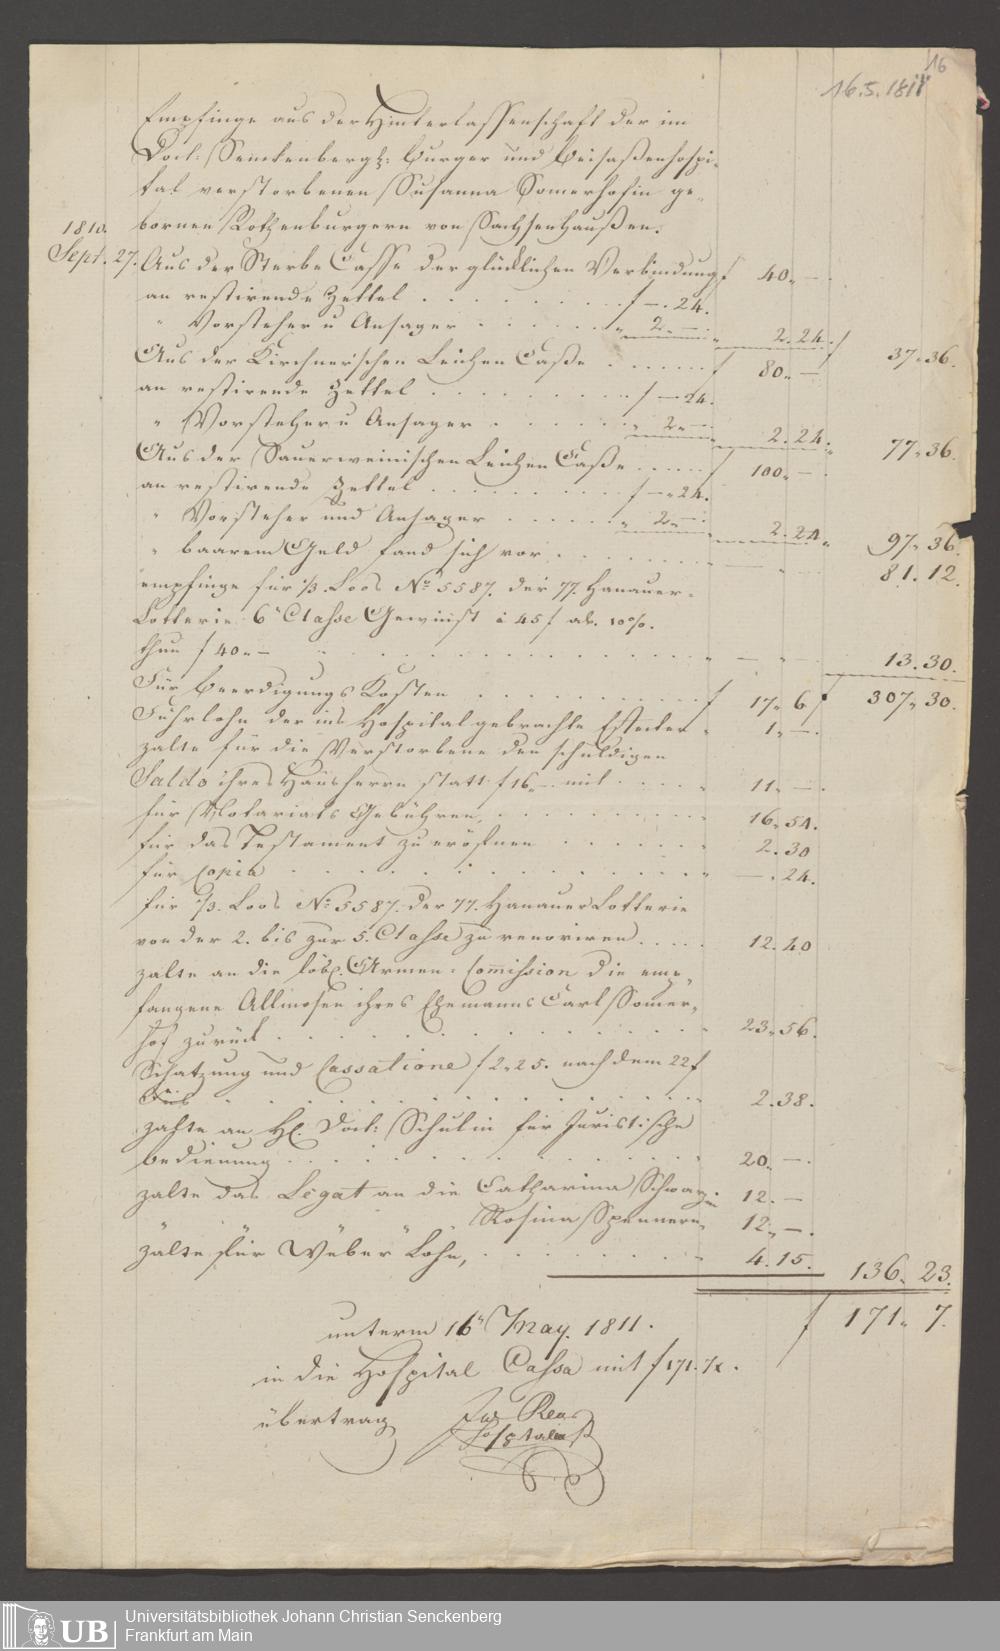 16
16.5.1811
Empfinge aus der Hinterlassenschaft der im
Doct: Senckenbergs: Burger und Beisaßenhospi-
tal verstorbenen Susanna Somerhofin ge-
bornen Rothenburgern von Sachsenhaußen.
1810.
Sept. 27. Aus der Sterbe Casse der glücklichen Verbindung f 40.. —.
an restirende Zettel . . . f —. 24.
" Vorsteher u Ansager . . . " 2.. —. " 2. 24. f 37.. 36.
Aus der Kirchner'schen Leichen Caße . . . f 80.. —
an restirende Zettel . . . f — 24.
" Vorsteher u Ansager . . . " 2.. — " 2. 24. " 77.. 36.
Aus der Sauerweinischen Leichen Caße . . . f 100.. —.
an restirende Zettel . . . f —.. 24.
" Vorsteher und Ansager . . . " 2.. —. " 2. 24. " 97.. 36.
" baarem Geld fand sich vor . . . " — " 81. 12.
empfinge für 1/3. Loos No. 5587. der 77. Hanauer-
Lotterie 6r Classe Gewinst á 45 f ab. 10%.
thun f 40.. — . . . " — " 13. 30.
Für Beerdigungs Kosten . . . f 17.. 6 f 307.. 30.
Fuhrlohn der ins Hospital gebrachte Effecten " 1.. —.
zalte für die Verstorbene den schuldigen
Saldo ihres Hausherrn statt f 16.. — mit . . . " 11.. —.
für Notariats Gebühren, . . . " 16.. 54.
für das Testament zu eröfnen . . . " 2. 30
für Copia . . . " —. 24.
für 1/3. Loos No. 5587. der 77. Hanauer Lotterie
von der 2. bis zur 5. Classe zu renoviren . . . 12. 40
zalte an die löbl. Armen-Commission die emp-
fangene Allmosen ihres Ehemanns Carl Somer-
hof zurück . . . " 23.. 56.
Schatzung und Cassatione f 2.. 25. nach dem 22 f
Fus . . . " 2. 38.
zahlte an H. Doct: Schulin für Juristische
bedienung . . . " 20.. —.
zalte das Legat an die Catharina Schwarzin 12. —
" " " Rosina Spennern " 12.. —.
zalte für Weber Lohn, . . . " 4. 15. 136.. 23.
f 171.. 7.
unterm 16n May. 1811.
in die Hospital Cassa mit f 171. 7x.
übertrag